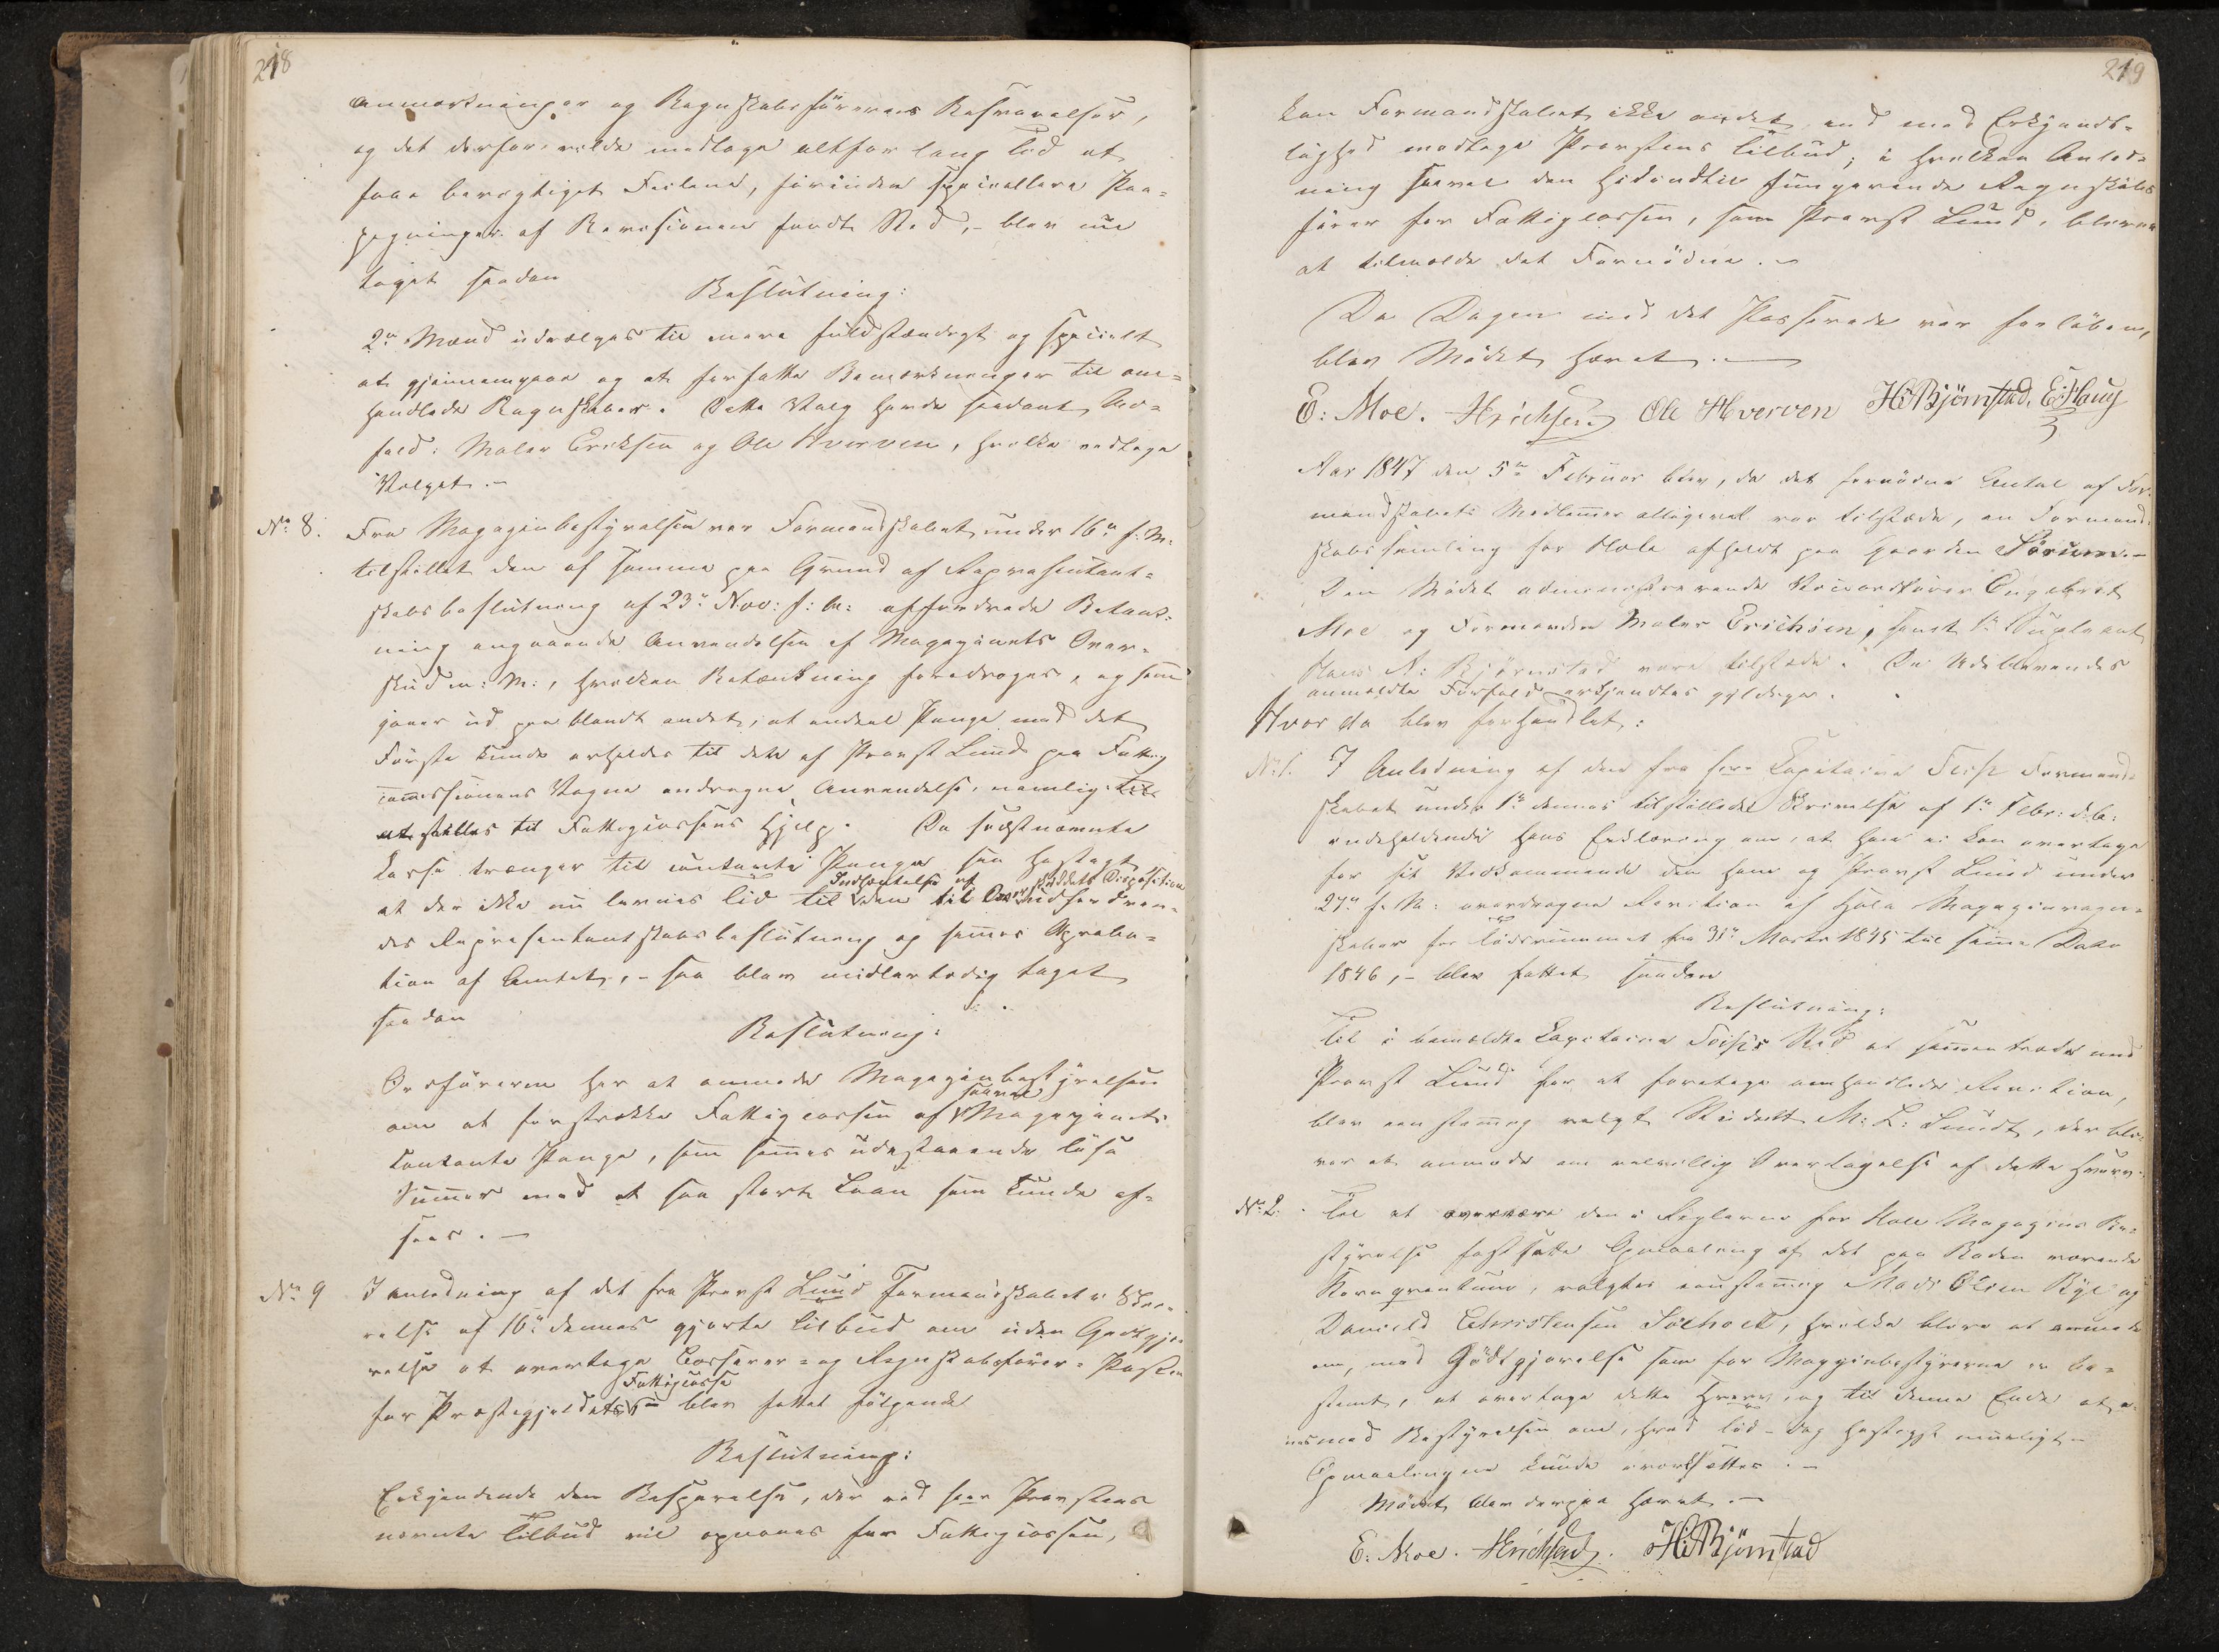 218
Anmærkninger og Regnskabsførerens Besvarelser,
og det derfor vilde medtage altfor lang Tid at
faae berigtiget Feilene, førinden speciellere Paa=
pegninger af Revisionen fandt Sted, - blev nu
taget saadan
Beslutning:
2de Mænd udvælges til mere fuldstændigt og specielt
at gjennemgaae og at forfatte Bemærkninger til om=
handlede Regnskaber. Dette Valg havde saadant Ud=
fald: Maler Eriksen og Ole Hverven, hvilke modtage
Valget. -
No 8. Fra Magazinbestyrelsen var Formandskabet under 16de f: M:
tilstillet den af samme paa Grund af Repræsentant=
skabsbeslutning af 23de Nov: f: A: affordrede Betænk=
ning angaaende Anvendelsen af Magazinets Over=
skud m: M:, hvilken Betænkning foredroges, og som
gaaer ud paa blandt andet, at endeel Penge med det
Første kunde erholdes til dete af Provst Lund paa Fattig
commissionens Vegne andragne Anvendelse, nemlig: til
at stilles til Fattigcassens Hjelp. Da sidstnævnte
Casse trænger til contante Penge saa hastigt,
at der ikke nu levnes Tid til Indhentelse af den til Overskuddets Disposition udfordren=
des Repræsentantskabsbeslutning og sammes Approba=
tion af Amtet, - saa blev midlertidig taget
saadan
Beslutning:
Ordføreren har at anmode Magazinbestyrelsen
om at forstrække Fattigcassen af saavel Magazinets
contante Penge, som sammes udestaaende løse
Summer med et saa stort Laan som kunde af=
sees. -
No 9 I Anledning af det fra Provst Lund Formandskabet i Skri=
velse af 16de dennes gjorte Tilbud om uden Godtgjø=
relse at overtage Casserer= og Regnskabsfører= Posten
for Præstegjeldets Fattigcasse - blev fattet følgende
Beslutning:
Erkjendende den Besparelse, der ved Herr Provstens
nævnte Tilbud vil opnaaes for Fattigcassen,
219
kan Formandskabet ikke andet, end med Erkjendt=
lighed modtage Provstens Tilbud; i hvilken Anled=
ning saavel den hidindtil fungerende Regnskabs
fører for Fattigcassen, som Provst Lund, bliver
at tilmelde det Fornødne. -
Da Dagen med det Passerede var forløben,
blev Mødet hævet. -
E: Moe. HErichsen Ole Hverven HABjörnstad. E: Haug
Aar 1847 den 5te Februar blev, da det fornødne Antal af For=
mandskabets Medlemmer alligevel var tilstæde, en Formand=
skabssamling for Hole afholdt paa Gaarden Sörum. -
Den Mødet administrerende Viceordfører Engebret
Moe og Formanden Maler Erichsen, samt 1ste Supleant
Hans A: Bjørnstad vare tilstæde. De Udeblevendes
anmeldte Forfald erkjendtes gyldige.
Hvor da blev forhandlet:
No 1. I Anledning af den fra Herr Capitaine Feiss Formand=
skabet under 1ste dennes tilstillede Skrivelse af 1ste Febr: d: A:
indeholdende hans Erklæring om, at han ei kan overtage
for sit Vedkommende den ham og Provst Lund under
27de f: M: overdragne Revision af Hole Magazinregn=
skaber for Tidsrummet fra 31te Marts 1845 til samme Dato
1846, - blev fattet saadan
Beslutning:
Til i bemeldte Capitaine Feiss's Sted at sammentræde med
Provst Lund for at foretage omhandlede Revision,
blev eenstemmig valgt Student M: L: Sundt, der bli=
ver at anmode om velvillig Overtagelse af dette Hverv.
No 2. Til at overvære den i Reglerne for Hole Magazins Be=
styrelse fastsatte Opmaaling af det paa Boden værende
Kornqvantum, valgtes eenstemmig Mads Olsen By og
Daniel Christensen Solhoel, hvilke blive at anmode
om, mod Godtgjørelse som for Magazinbestyrerne er be=
stemt, at overtage dette Hverv, og til denne Ende at e=
nes med Bestyrelsen om, hvad Tid - dog hastigst mueligt -
Opmaalingen kunde iværksættes. -
Mødet blev derpaa hævet. -
E. Moe. HErichsen. HABjörnstad